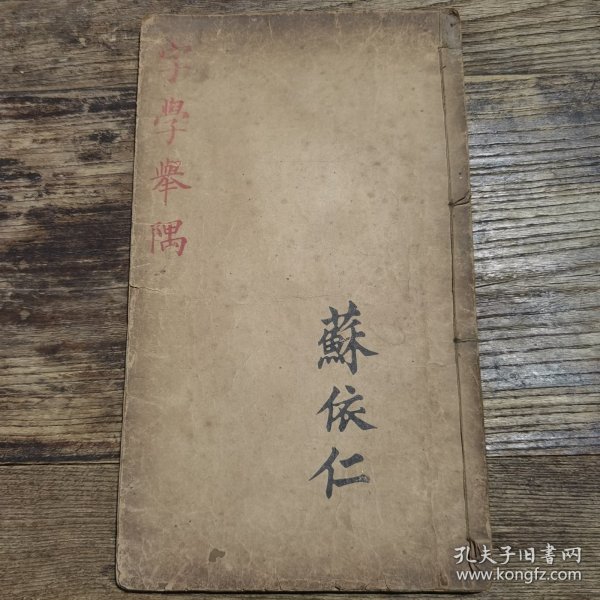 字學舉隅
蘇依仁
孔夫子旧書网
www.kongfz.com